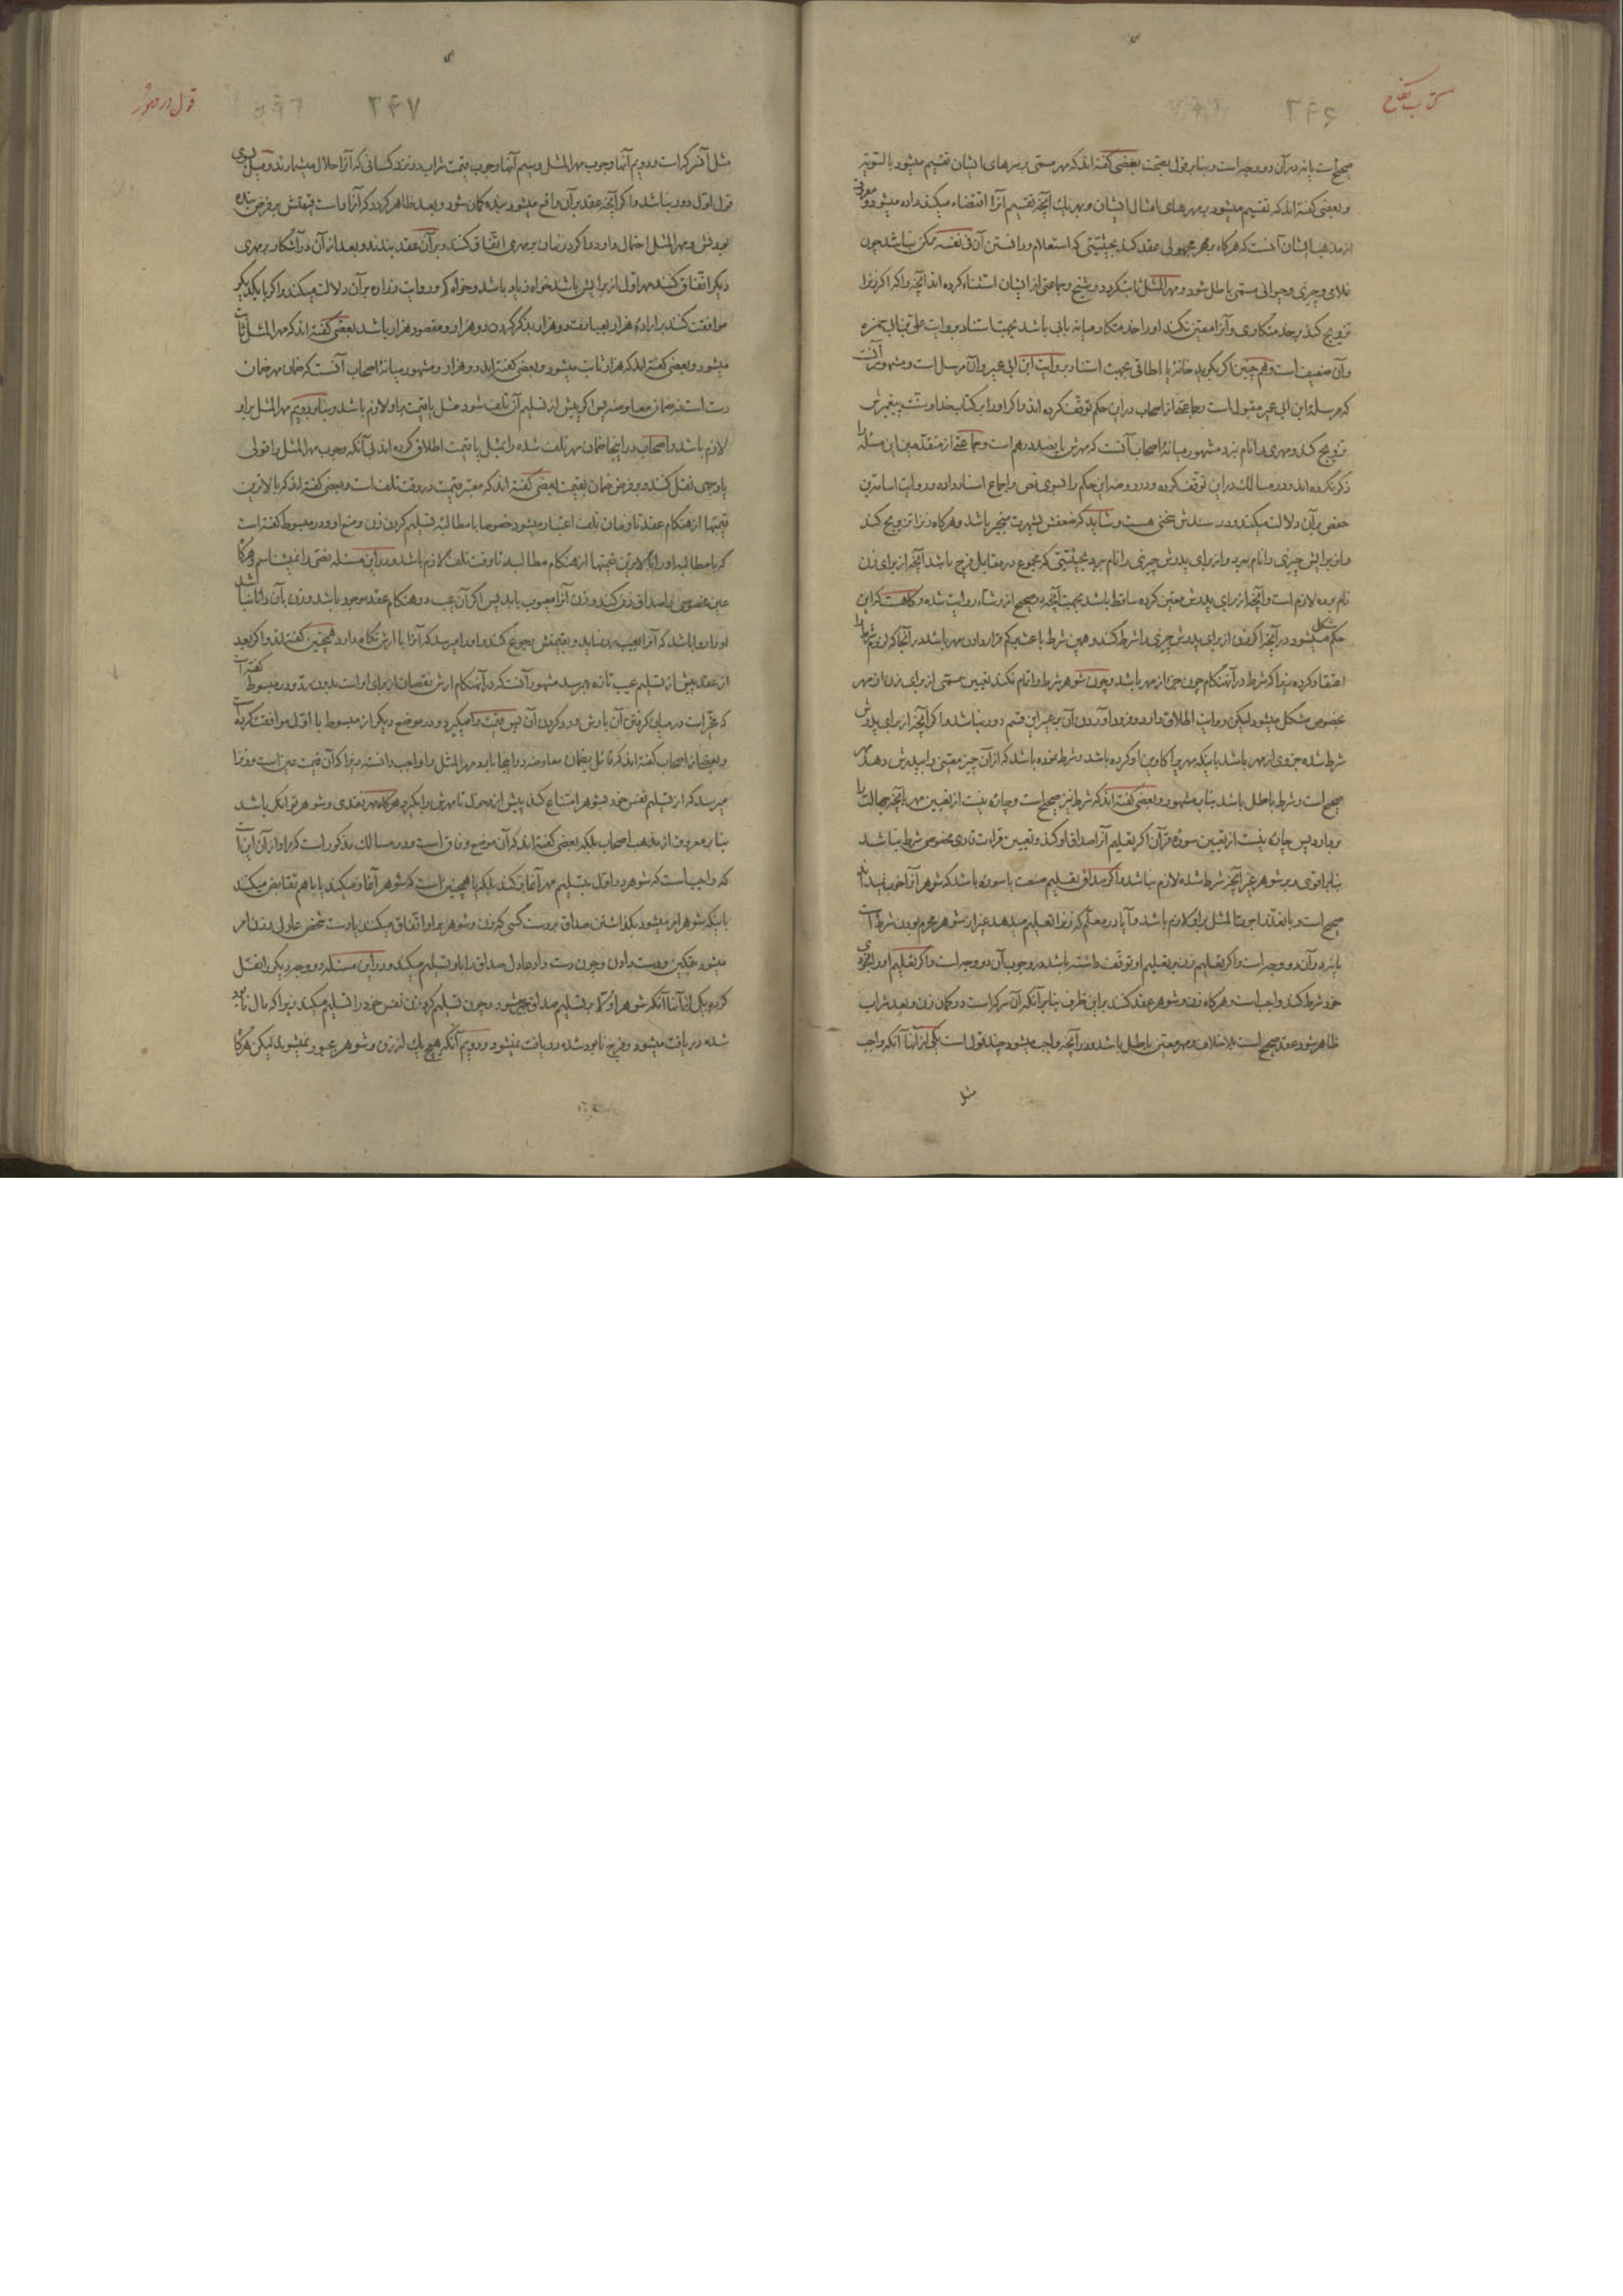 کتاب نکاح
۲۴۶
صحیح است یا نه در آن دو وجه است و بنا بر قول بصحت بعضی گفته اند که مهر مسمی بر سرهای ایشان تقسیم میشود بالسویه
و بعضی گفته اند که تقسیم میشود بر مهرهای امثال ایشان و بهر یک آنچه تقسیم آنرا اقتضاء میکند داده میشود و معروف
از مذهب ایشان آنست که هرگاه بمهر مجهولی عقد کند بحیثیتی که استعلام و دانستن آن فی نفسه ممکن نباشد چون
غلامی و چیزی و حیوانی مسمی باطل شود و مهر المثل ثابت گردد و شیخ و جماعتی از ایشان استثناء کرده اند آنچه را که اگر زنرا
تزویج کند بر خدمتکاری و آنرا معین نکند او را خدمتکار میانه یابی باشد بجهت استناد بروایت علی بن ابی حمزه
و آن ضعیف است و هم چنین اگر بگوید خانهٔ یا اطاقی بجهت استناد بروایت ابن ابی عمیر و آن مرسل است و مشهور آنست
که مرسلهٔ ابن ابی عمیر مقبول است و جماعتی از اصحاب در این حکم توقف کرده اند و اگر او را بر کتاب خدا و سنت پیغمبرش
تزویج کند و مهری را نام نبرد مشهور میانهٔ اصحاب آنست که مهرش پانصد درهم است و جماعتی از متقدمین این مسئله را
ذکر نکرده اند و در مسالک در این توقف کرده و در روضه این حکم را بسوی نص و اجماع اسناد داده و روایت اسامة بن
حفص بر آن دلالت میکند و در سندش سخنی هست و شاید که ضعفش بشهرت منجبر باشد و هرگاه زنرا تزویج کند
و از برایش چیزی را نام ببرد و از برای پدرش چیزی را نام ببرد بحیثیتی که مجموع در مقابل فرج باشد آنچه از برای زن
نام برده لازم است و آنچه از برای پدرش معین کرده ساقط باشد بجهت آنچه در صحیح از وشاء روایت شده و گاهست که این
حکم مشکل میشود در آنچه اگر زن از برای پدرش چیزی را شرط کند و همین شرط باعث بر کم قرار دادن مهر باشد در آنجا که لزوم شرط را
اعتقاد کرده زیرا که شرط در آنهنگام چون جزء از مهر باشد و چون شوهر شرط را تام نکند تعیین مسمی از برای زن از مهر
بخصوص مشکل میشود لیکن روایت اطلاق دارد و فرود آوردن آن بر غیر این قسم دور نباشد و اگر آنچه از برای پدرش
شرط شده جزوی از مهر باشد باینکه مهر را کاوین او کرده باشد و شرط نموده باشد که از آن چیز معینی را بپدرش دهد مهر
صحیح است و شرط باطل باشد بنا بر مشهور و بعضی گفته اند که شرط نیز صحیح است و چاره نیست از تعیین مهر بآنچه جهالت را
بردارد پس چاره نیست از تعیین سورهٔ قرآن اگر تعلیم آنرا صداق او کند و تعیین قراءت قاری مخصوصی شرط نباشد
بنا بر اقوی و بر شوهر غیر آنچه شرط شده لازم نباشد و اگر صداق تعلیم صنعت یا سوره باشد که شوهر آنرا خوب نمیداند
صحیح است و با تعذر اجرة المثل بر او لازم باشد و آیا در معلم که زنرا تعلیم میدهد غیر از شوهر محرم بودن شرط است
یا نه در آن دو وجه است و اگر تعلیم زن بر تعلیم او توقف داشته باشد در وجوب آن دو وجه است و اگر تعلیم او را بخودی
خود شرط کند واجب است و هرگاه زن و شوهر عقد کنند بر این ظرف بنا بر آنکه آن سرکه است در گمان زن و بعد شراب
ظاهر شود عقد صحیح است بلا خلاف و مهر معین باطل باشد و در آنچه واجب میشود چند قول است یکی از آنها آنکه واجب
مثل
قول در مهور
۲۴۷
مثل آن سرکه است و دویم آنها وجوب مهر المثل و سیم آنها وجوب قیمت شراب در نزد کسانی که آنرا حلال میشمارند و میل بسوی
قول اول دور نباشد و اگر آنچه عقد بر آن واقع میشود بنده گمان شود و بعد ظاهر گردد که آزاد است قیمتش بر فرض بنده
بودنش و مهر المثل احتمال دارد و اگر در نهان بر مهری اتفاق کنند و بر آن عقد بندند و بعد از آن در آشکار بر مهری
دیگر اتفاق کنند مهر اول از برایش باشد خواه زیاد باشد و خواه کم و روایت زراره بر آن دلالت میکند و اگر با یکدیگر
موافقت کنند بر ارادهٔ هزار بعبارت دو هزار بذکر کردن دو هزار و مقصود هزار باشد بعضی گفته اند که مهر المثل ثابت
میشود و بعضی گفته اند که هزار ثابت میشود و بعضی گفته اند دو هزار و مشهور میانهٔ اصحاب آنست که ضمان مهر ضمان
دست است نه ضمان معاوضه پس اگر پیش از تسلیم آن تلف شود مثل یا قیمت بر او لازم باشد و بنا بر دویم مهر المثل بر او
لازم باشد و اصحاب در اینجا ضمان مهر تلف شده را بمثل یا قیمت اطلاق کرده اند بی آنکه وجوب مهر المثل را قولی
یا وجهی نقل کنند و بر فرض ضمان بقیمت بعضی گفته اند که معتبر قیمت در وقت تلف است و بعضی گفته اند که بالاترین
قیمتها از هنگام عقد تا زمان تلف اعتبار میشود خصوصا با مطالبهٔ تسلیم کردن زن و منع او و در مبسوط گفته است
که با مطالبه او را بالاترین قیمتها از هنگام مطالبه تا وقت تلف لازم باشد و در این مسئله نصی را نمیشناسم و هرگاه
عین مخصوصی را صداق زن کند و زن آنرا معیوب یابد پس اگر آن عیب در هنگام عقد موجود باشد و زن بآن دانا نباشد
او را روا باشد که آنرا بعیب رد نماید و بقیمتش رجوع کند و او را میرسد که آنرا با ارش نگاه دارد همچنین گفته اند و اگر بعد
از عقد پیش از تسلیم عیب تازه بهم رسد مشهور آنست که در آنهنگام ارش نقصان از برای او است بدون رد و در مبسوط گفته است
که مخیر است در میان گرفتن آن با ارش و رد کردن آن پس قیمت را میگیرد و در موضع دیگر از مبسوط با اول موافقت کرده است
و بعضی از اصحاب گفته اند که قائل بضمان معاوضه را در اینجا باید مهر المثل را واجب دانسته زیرا که آن قیمت عین است و زنرا
میرسد که از تسلیم نفس خود بشوهر امتناع کند پیش از دخول تا مهرش را بگیرد هرگاه مهر نقدی و شوهر توانگر باشد
بنا بر معروف از مذهب اصحاب بلکه بعضی گفته اند که آن موضع وفاق است و در مسالک مذکور است که مراد از آن این است
که واجب است که شوهر در اول بتسلیم مهر آغاز کند بلکه یا همچنین است که شوهر آغاز میکند یا با هم تقابض میکنند
باینکه شوهر امر میشود بگذاشتن صداق بر دست کسی که زن و شوهر بر او اتفاق میکنند یا دست شخص عادلی و زن امر
میشود بتمکین و دست دادن و چون دست داد عادل صداق را باو تسلیم میکند و در این مسئله دو وجه دیگر را نقل
کرده یکی از آنها آنکه شوهر اولا بر تسلیم صداق مجبور میشود و چون تسلیم کرد زن نفس خود را تسلیم میکند زیرا که مال نابود
شده دریافت میشود و فرج نابود شده دریافت نمیشود و دویم آنکه هیچ یک از زن و شوهر مجبور نمیشود لیکن هرگاه